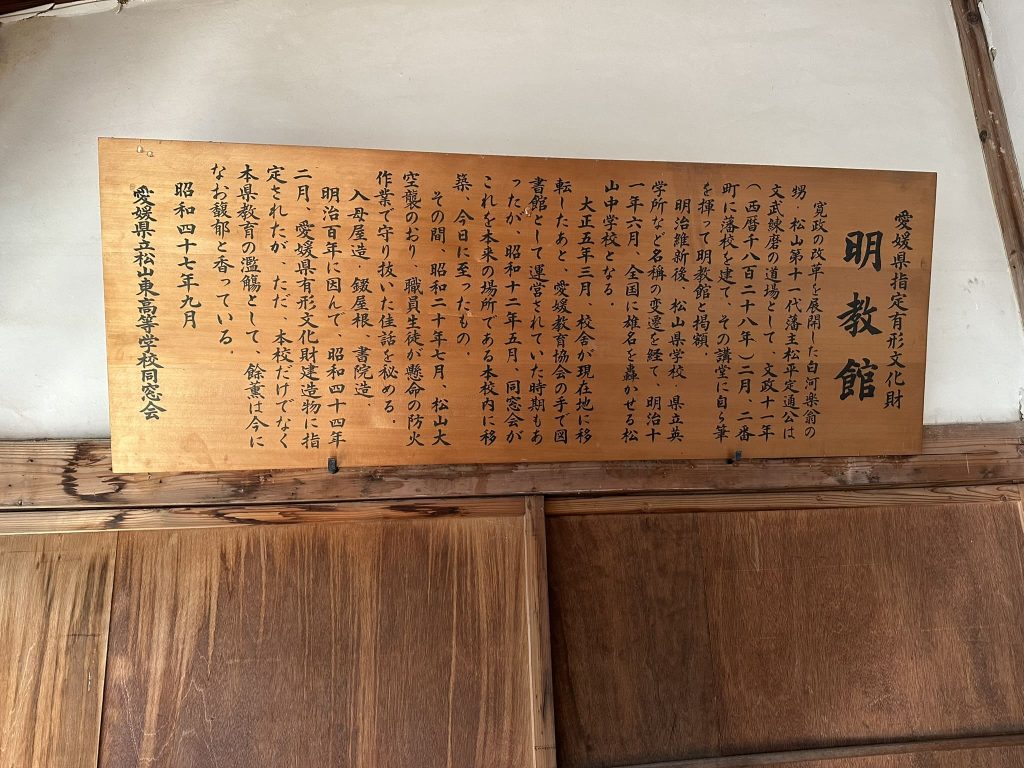 愛媛県指定有形文化財
明教館
寛政の改革を展開した白河楽翁の
甥、松山第十一代藩主松平定通公は
文武練磨の道場として、文政十一年
(西暦千八百二十八年)二月、二番
町に藩校を建て、その講堂に自ら筆
を揮って明教館と掲額。
明治維新後、松山県学校、県立英
学所など名称の変遷を経て、明治十
一年六月、全国に雄名を轟かせる松
山中学校となる。
大正五年三月、校舎が現在地に移
転したあと、愛媛教育協会の手で図
書館として運営されていた時期もあ
ったが、昭和十二年五月、同窓会が
これを本来の場所である本校内に移
築、今日に至ったもの。
その間、昭和二十年七月、松山大
空襲のおり、職員生徒が懸命の防火
作業で守り抜いた佳話を秘める。
入母屋造、錣屋根、書院造。
明治百年に因んで、昭和四十四年
二月、愛媛県有形文化財建造物に指
定されたが、ただ、本校だけでなく
本県教育の濫觴として、餘薫は今に
なお馥郁と香っている。
昭和四十七年九月
愛媛県立松山東高等学校同窓会